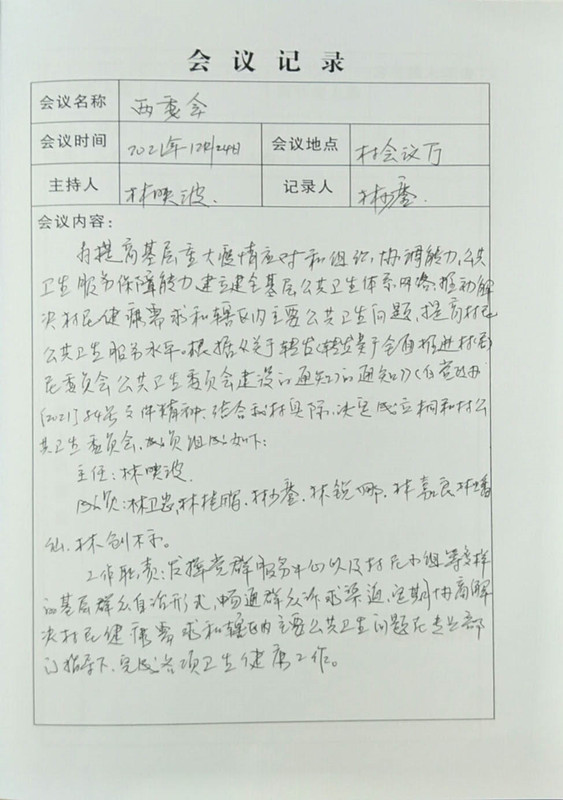 会议记录
会议名称 两委会
会议时间 2021年12月24日 会议地点 村会议厅
主持人 林映波. 记录人 林
会议内容:
为提高基层重大疫情应对和组织,协调能力,公共
卫生服务保障能力,建立健全基层公共卫生体系网络,推动解
决村民健康需求和辖区内主要公共卫生问题,提高村民
公共卫生服务水平。根据《关于转发《转发关于全面推进村(居)
民委员会公共卫生委员会建设的通知》的通知》(
[2021]84号文件精神.结合我村实际,决定成立桐和村公
共卫生委员会,成员组成如下:
主任:林映波.
成员:林卫忠,林桂,林,林锐娜,林嘉良,林
林创。
工作职责:发挥党群服务中心以及村民小组等多样
的基层群众自治形式,畅通群众诉求渠道,定期协商解
决村民健康需求和辖区内主要公共卫生问题在专业部
门指导下,完成各项卫生健康工作。